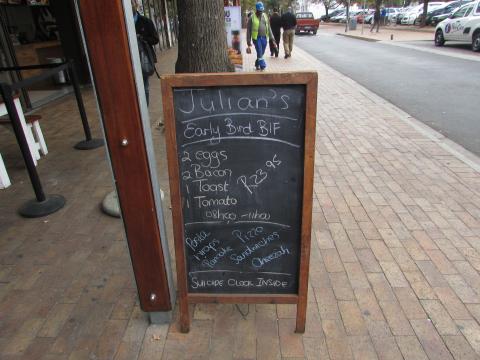 Julian's
Early Bird B/F
2 eggs
2 Bacon
1 Toast
1 Tomato
R23 95
08h00 - 11h00
Pasta Pizza
Wraps Sandwiches
Pancake Cheezah
SUICIDE CLOCK INSIDE